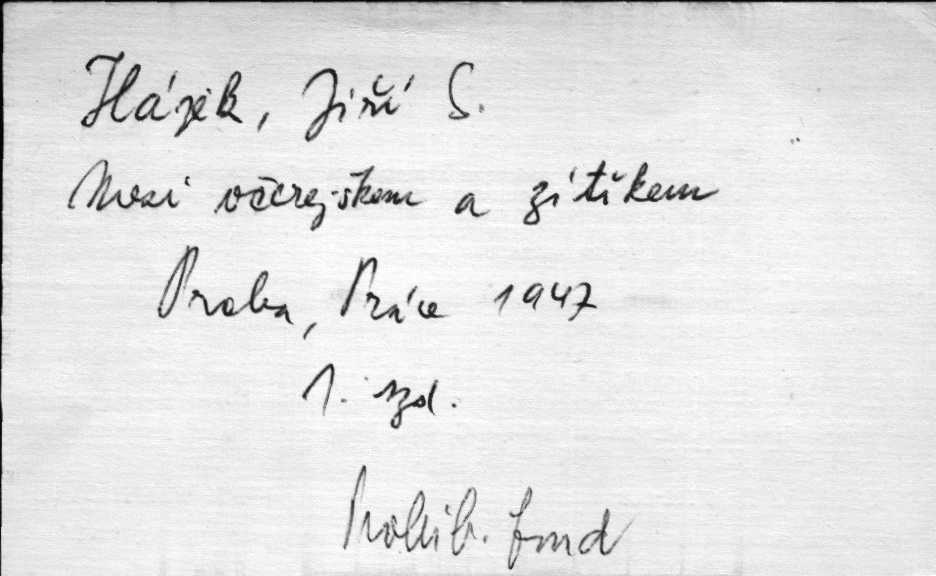 Hájek, Jiří S.
Mezi včerejškem a zítřkem
Praha, Práce 1947
1. vyd.
Prohib. fond